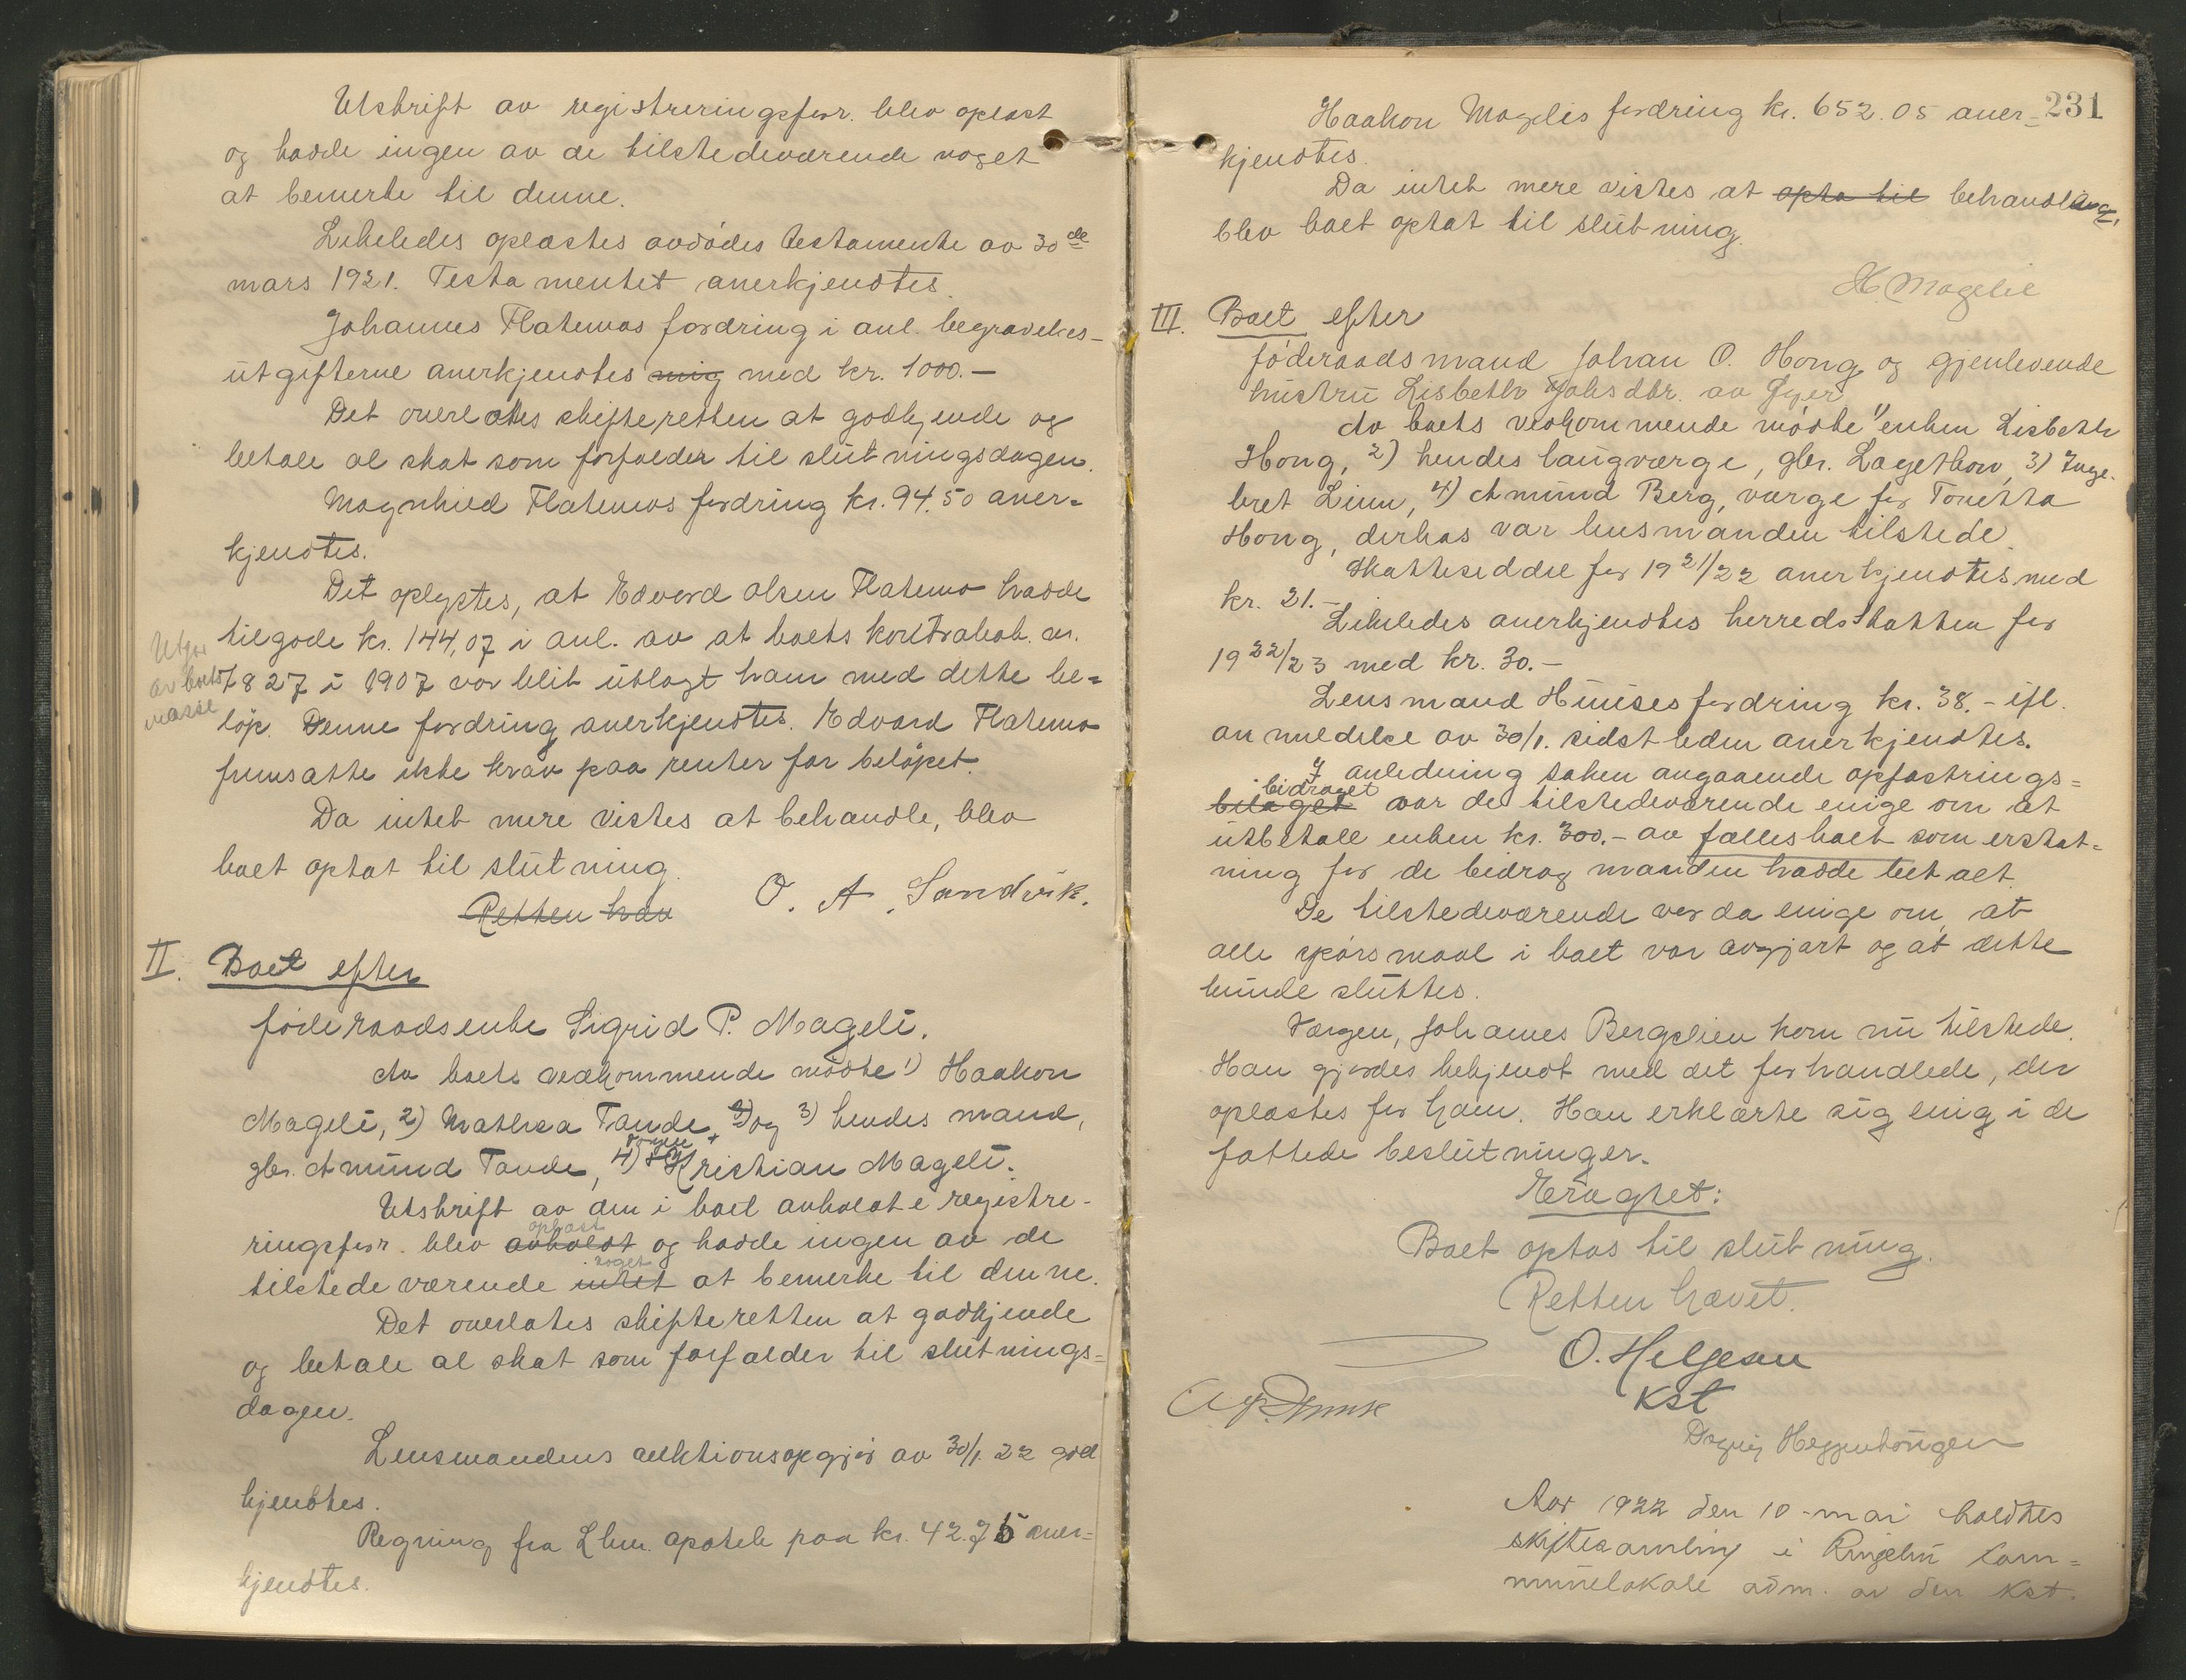 Utskrift av registreringsforr. blev oplæst
og hadde ingen av de tilstedeværende noget
at bemerke til denne.
Likeledes oplæstes avdødes testamente av 30de
mars 1921. Testamentet anerkjendtes.
Johannes Flatemos fordring i anl. begravelses-
utgifterne anerkjendtes mig med kr. 1000.-
Det overlates skifteretten at godkjende og
betale al skat som forfalder til slutningsdagen.
Magnhild Flatemos fordring kr. 94.50 aner-
kjendtes.
Det oplystes, at Edvard Olsen Flatemo hadde
tilgode kr. 144,07 i anl. av at boets kontrabok nr.
Utgør
av boets
masse
7827 i 1907 var blit utlagt ham med dette be-
løp. Denne fordring anerkjendtes. Edvard Flatemo
fremsatte ikke krav paa renter for beløpet.
Da intet mere vistes at behandle, blev
boet optat til slutning.
Retten hæv
O. A. Sandvik.
II. Boet efter
føderaadsenke Sigrid P. Mageli.
Av boets vedkommende mødte 1) Haakon
Mageli, 2) Mathea Tande og 3) hendes mand,
gbr. Amund Tande, 4) Kristian Mageli.
Utskrift av den i boet avholdte registre-
ringsforr. blev avholdt oplæst og hadde ingen av de
tilstedeværende intet noget at bemerke til denne.
Det overlates skifteretten at godkjende
og betale al skat som forfalder til slutnings-
dagen.
Lensmandens auktionsopgjør av 30/1. 22 god
kjendtes.
Regning fra Lhm. apotek paa kr. 42.75 aner-
kjendtes.
231
Haakon Magelis fordring kr. 652.05 aner-
kjendtes.
Da intet mere vistes at opta til behandling,
blev boet optat til slutning.
H. Magelie
III. Boet efter
føderaadsmand Johan O. Hong og gjenlevende
hustru Lisbeth Johsdtr. av Øyer
Av boets vedkommende mødte 1) enken Lisbeth
Hong, 2) hendes laugværge, gbr. Lagethon, 3) Inge-
bret Linn, 4) Amund Berg, værge for Tonetta
Hong, derhos var lensmanden tilstede.
Skatteseddel for 1921/22 anerkjendtes med
kr. 21.-
Likeledes anerkjendtes herredsskatten for
1922/23 med kr. 30.-
Lensmand Huuses fordring kr. 38.- ifl.
anmeldelse av 30/1. sidstleden anerkjendtes.
I anledning saken angaaende opfostrings-
beløpet bidraget var de tilstedeværende enige om at
utbetale enken kr. 300.- av fællesboet som erstat-
ning for de bidrag manden hadde betalt.
De tilstedeværende var da enige om, at
alle spørsmaal i boet var avgjort og at dette
kunde sluttes.
Værgen, Johannes Bergslien kom nu tilstede.
Han gjordes bekjendt med det forhandlede, der
oplæstes for ham. Han erklærte sig enig i de
fattede beslutninger.
Eragtet:
Boet optas til slutning.
Retten hævet.
O. Helgesen
Kst
Dagny Heggenhougen
Aar 1922 den 10-mai holdtes
skiftesamling i Ringebu kom-
munelokale adm. av den kst.